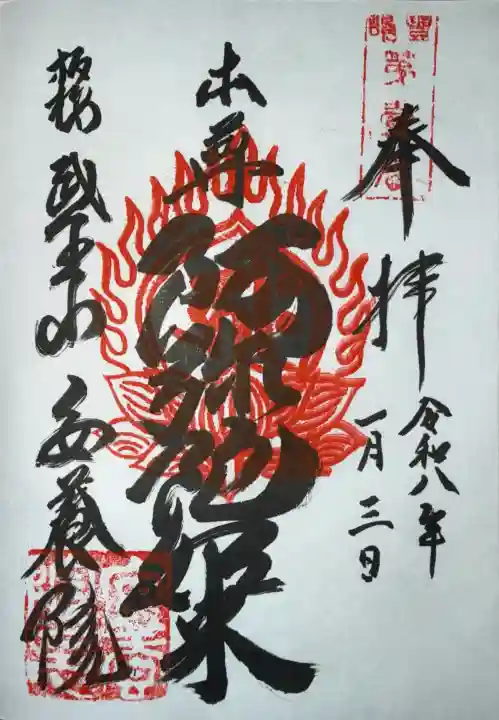 奉拝
令和八年
一月三日
本尊
阿弥陀如来
武王山
安養院